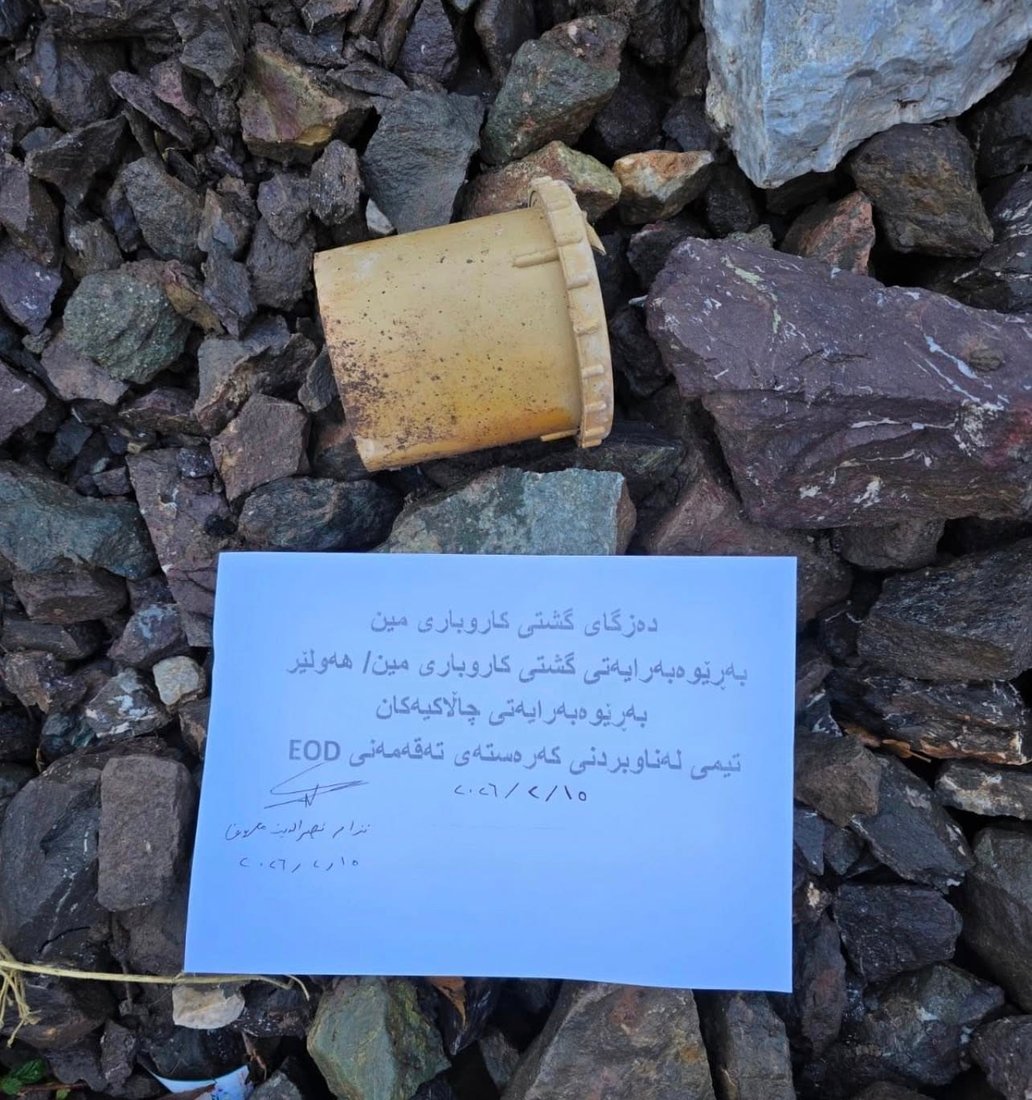 دەزگای گشتی کاروباری مین
بەڕێوەبەرایەتی گشتی کاروباری مین/ هەولێر
بەڕێوەبەرایەتی چاڵاکیەکان
تیمی لەناوبردنی کەرەستەی تەقەمەنی EOD
٢٠٢٦/٢/١٥
نصرالدین
٢٠٢٦/٢/١٥